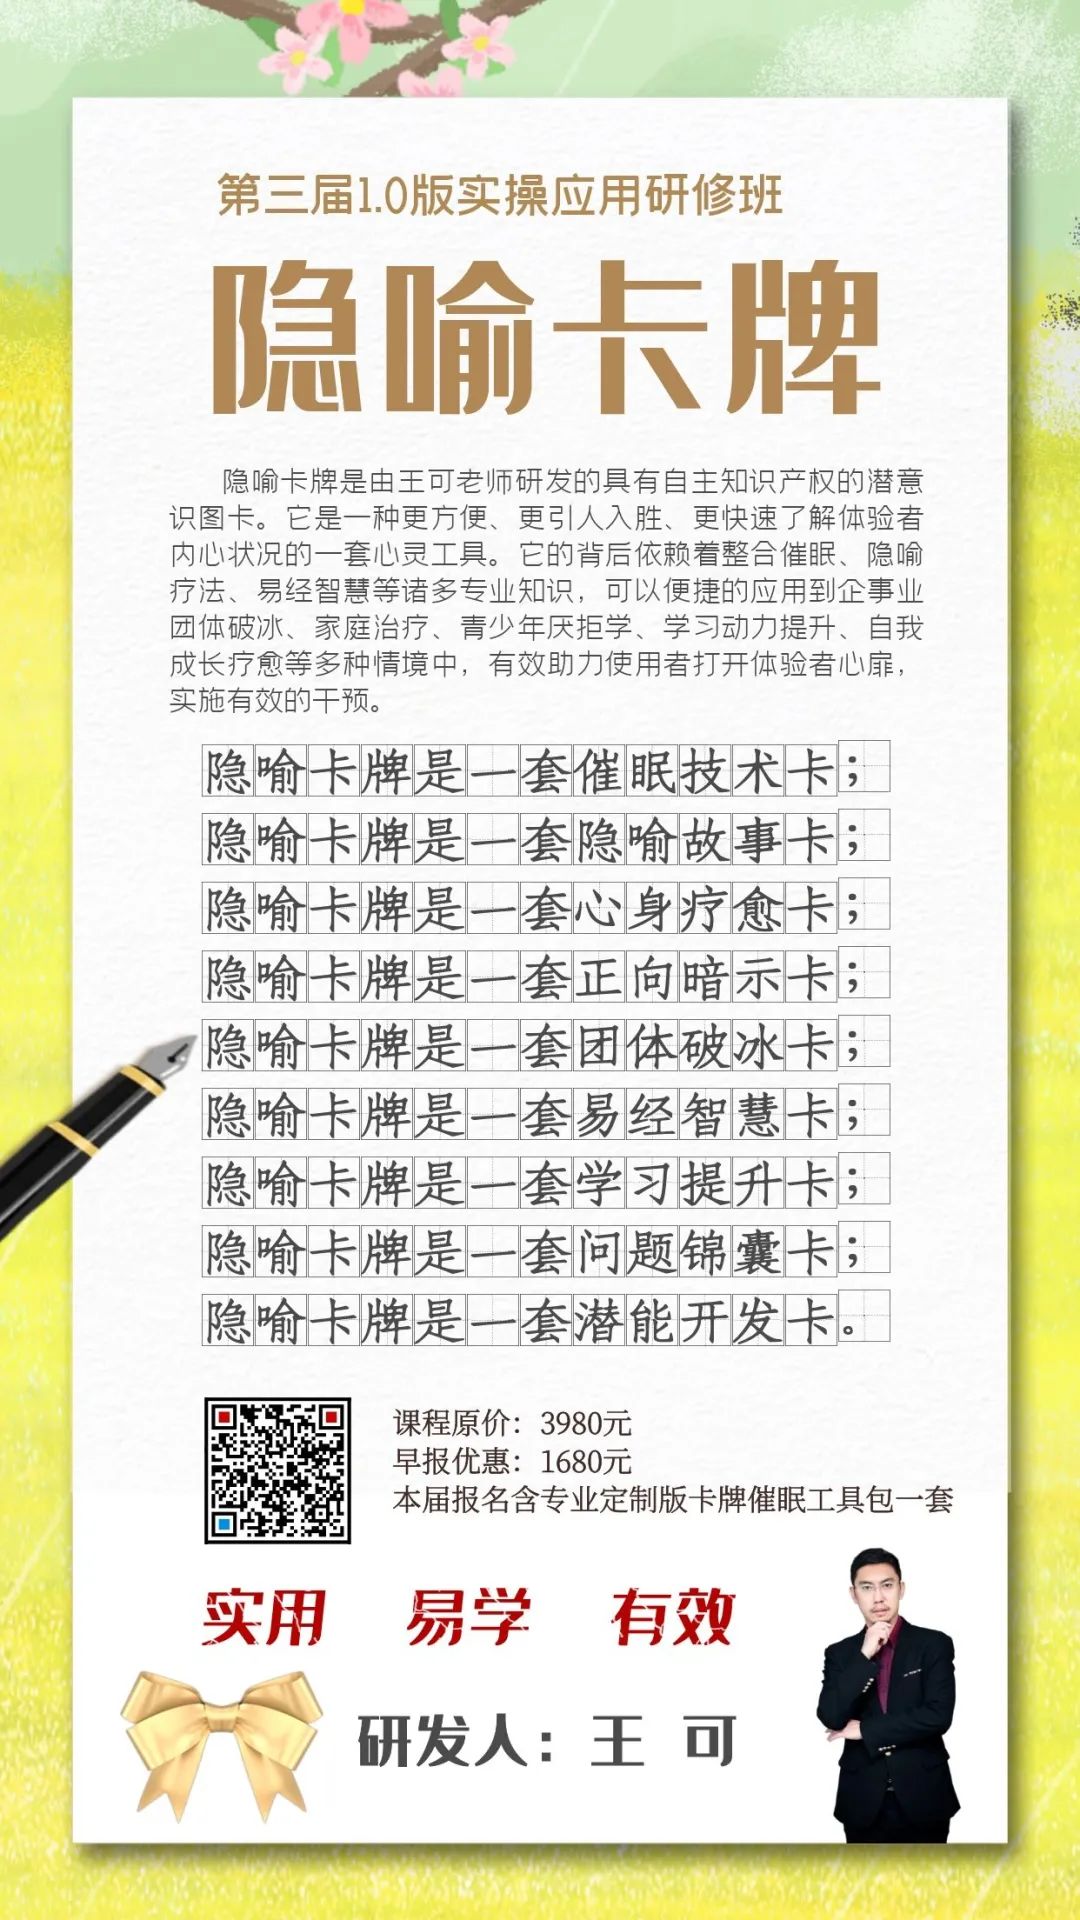 第三届1.0版实操应用研修班
隐喻卡牌
隐喻卡牌是由王可老师研发的具有自主知识产权的潜意
识图卡。它是一种更方便、更引人入胜、更快速了解体验者
内心状况的一套心灵工具。它的背后依赖着整合催眠、隐喻
疗法、易经智慧等诸多专业知识，可以便捷的应用到企事业
团体破冰、家庭治疗、青少年厌拒学、学习动力提升、自我
成长疗愈等多种情境中，有效助力使用者打开体验者心扉，
实施有效的干预。
隐喻卡牌是一套催眠技术卡；
隐喻卡牌是一套隐喻故事卡；
隐喻卡牌是一套心身疗愈卡；
隐喻卡牌是一套正向暗示卡；
隐喻卡牌是一套团体破冰卡；
隐喻卡牌是一套易经智慧卡；
隐喻卡牌是一套学习提升卡；
隐喻卡牌是一套问题锦囊卡；
隐喻卡牌是一套潜能开发卡。
课程原价：3980元
早报优惠：1680元
本届报名含专业定制版卡牌催眠工具包一套
实用 易学 有效
研发人：王 可